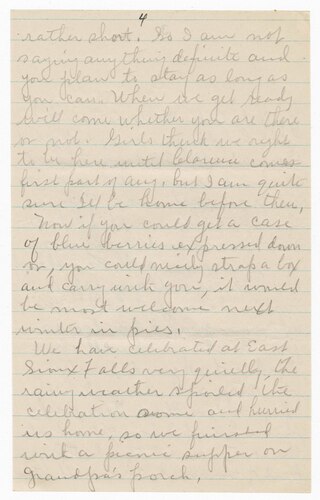 4
rather short. So I am not
saying anything definite and
you plan to stay as long as
you can. When we get ready
will come whether you are there
or not. Girls think we ought
to be here until Clarence comes
first part of Aug, but I am quite
sure I'll be home before then,
Now if you could get a case
of blue berries expressed down
or, you could nicely strap a box
and carry with you, it would
be most welcome next
winter in pies.
We have celebrated at East
Sioux Falls very quietly, the
rainy weather spoiled the
celebration some and hurried
us home, so we finished
with a picnic supper on
Grandpa's porch,